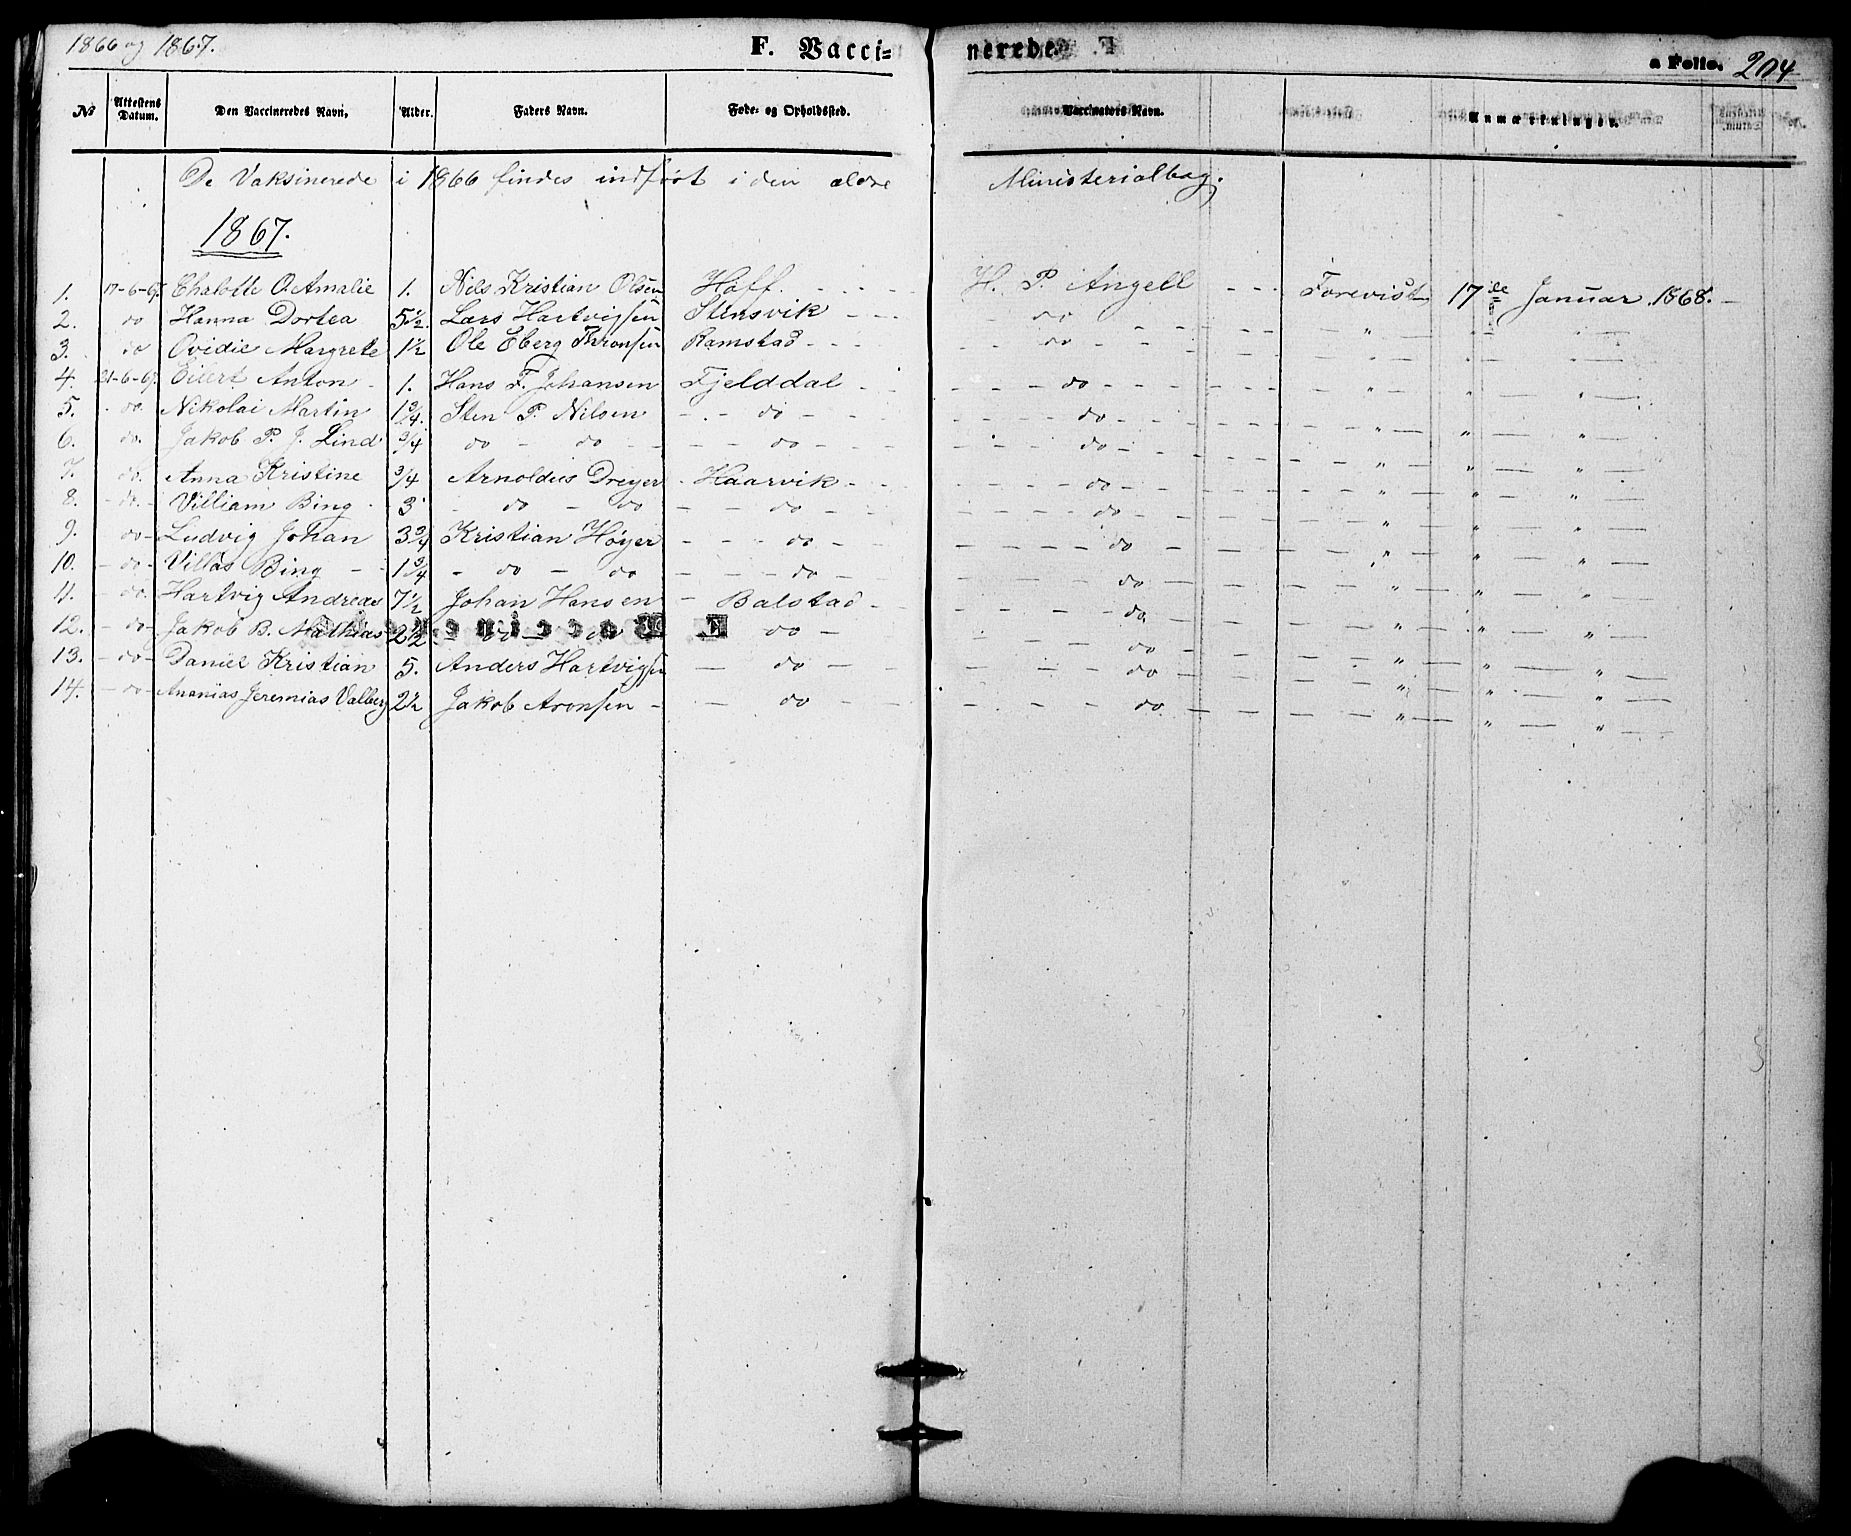 1866 og 1867.
F. Vaccinerede.
a Folio. 204
No | Attestens Datum. | Den Vaccineredes Navn. | Alder. | Faders Navn. | Føde- og Opholdssted. | Vaccinators Navn. | Anmærkninger.
De Vaksinerede i 1866 findes indført i den ældre Ministerialbog.
1867.
1. 17-6-67. Chalotte O. Amalie 1. Nils Kristian Olsen Hoff. - - - - H. P. Angell - - - Forevist 17de Januar 1868. -
2. do Hanna Dortea 5 1/2. Lars Hartvigsen Stensvik - - - do - - - " " "
3. do Ovidie Margrete 1 1/2 Ole Eberg Thronsen Ramstad - - - - do - - - " " "
4. 21-6-67. Eilert Anton - 1. Hans F. Johansen Fjelddal - - - do - - - " " "
5. - do. Nikolai Martin 1 3/4. Sten P. Nilsen - - do - - - do - - - " " "
6. do. Jakob P. J. Lind 3/4 do - do - - - do - - - do - - - " " "
7. do. Anna Kristine 3/4 Arnoldus Dreyer - Haarvik - - - do - - - " " "
8. - do. - Villiam Bing - 3 - do - do - - do - - - do - - - " " "
9. do - Ludvig Johan 3 3/4 Kristian Høyer - - - do - - - do - - - " " "
10. - do - Villas Bing - - 1 3/4 - do - do - - - do - - - do - - - " " "
11. - do - Hartvig Andreas 7 1/2 Johan Hansen - Balstad - - - do - - - " " "
12. - do - Jakob B. Mathias 2 1/2 - do - do - - do - - - do - - - " " "
13. - do - Daniel Kristian 5. Anders Hartvigsen - do - - - do - - - " " "
14. - do - Ananias Jeremias Valberg 2 1/2 Jakob Aronsen - - do - - - do - - - " " "